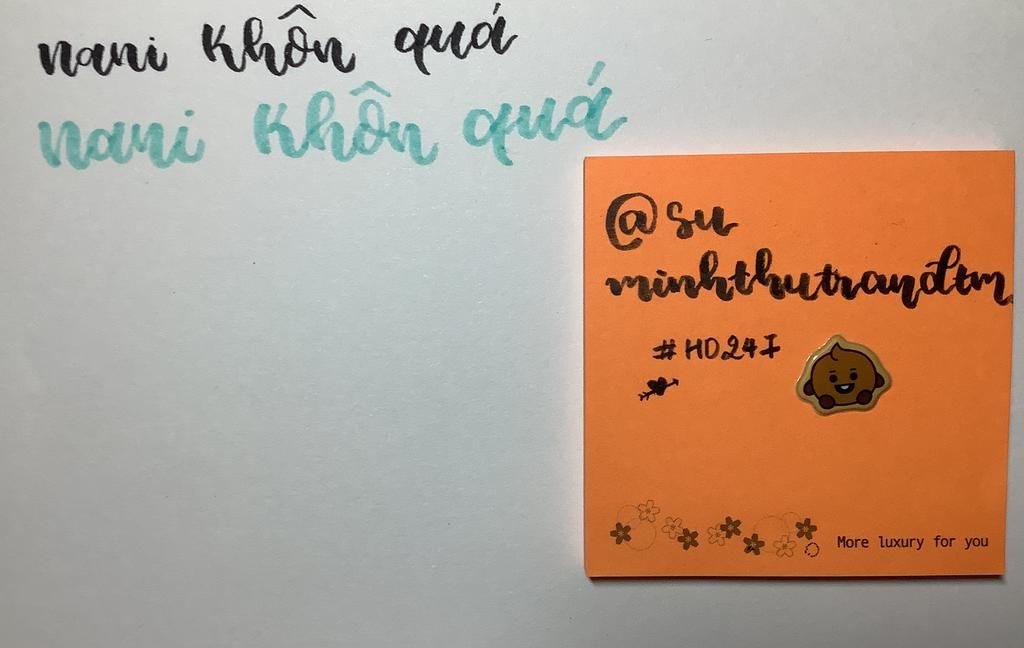 nani khôn quá
nani khôn quá
@su
minhthutrandtm
#HD24I
More luxury for you